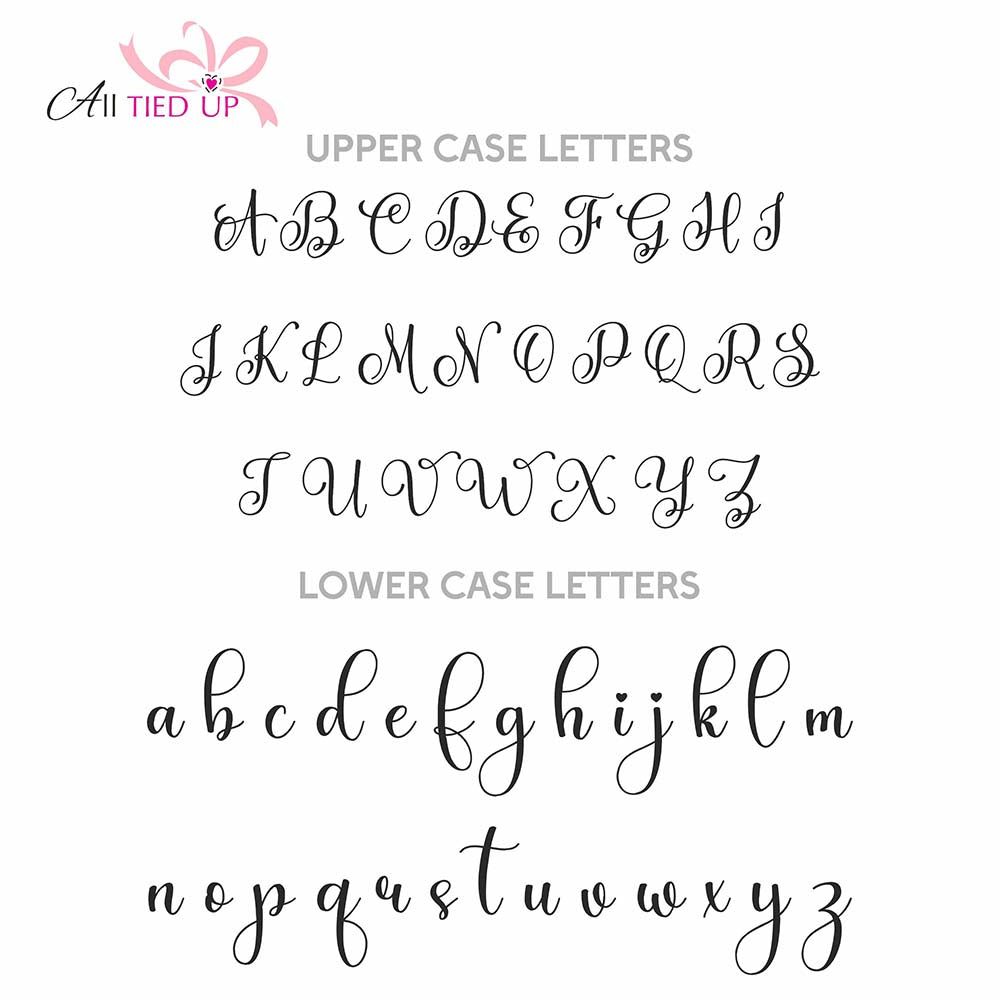 All TIED UP
UPPER CASE LETTERS
A B C D E F G H I
J K L M N O P Q R S
T U V W X Y Z
LOWER CASE LETTERS
a b c d e f g h i j k l m
n o p q r s t u v w x y z